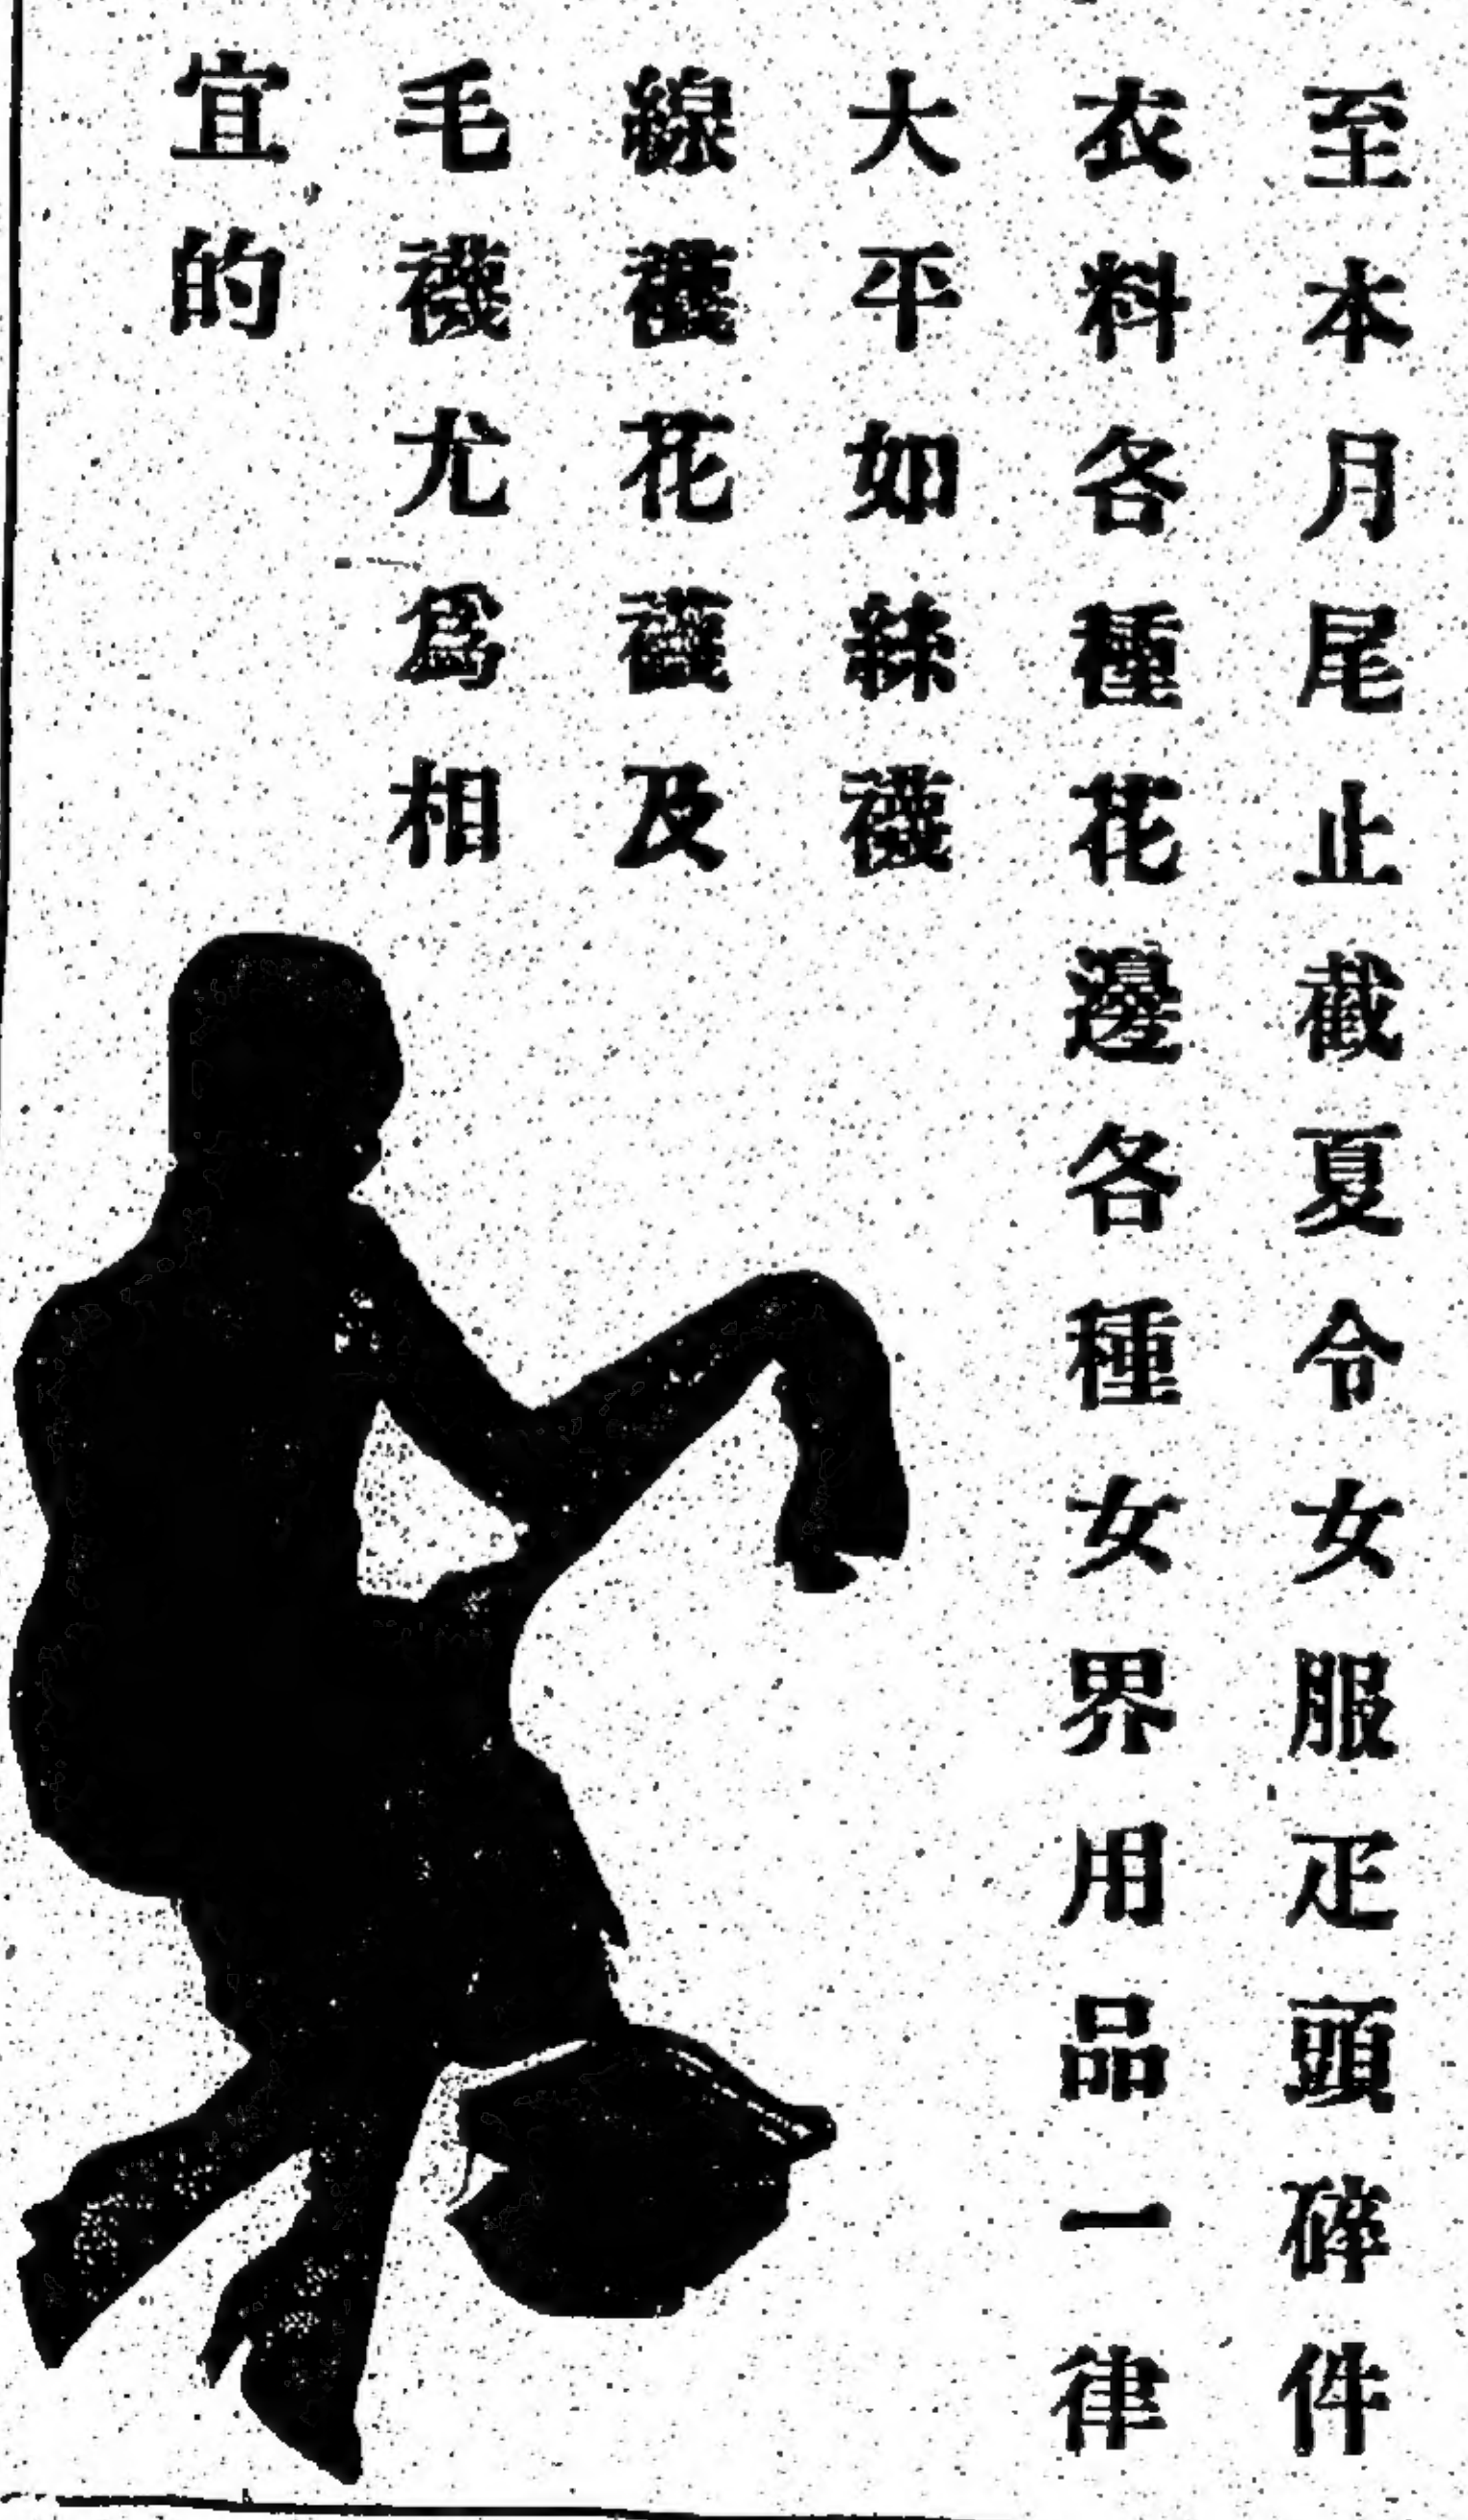 至本月尾止截夏令女服疋頭碎件
衣料各種花邊各種女界用品一律
大平如絲襪
線襪花襪及
毛襪尤爲相
宜的